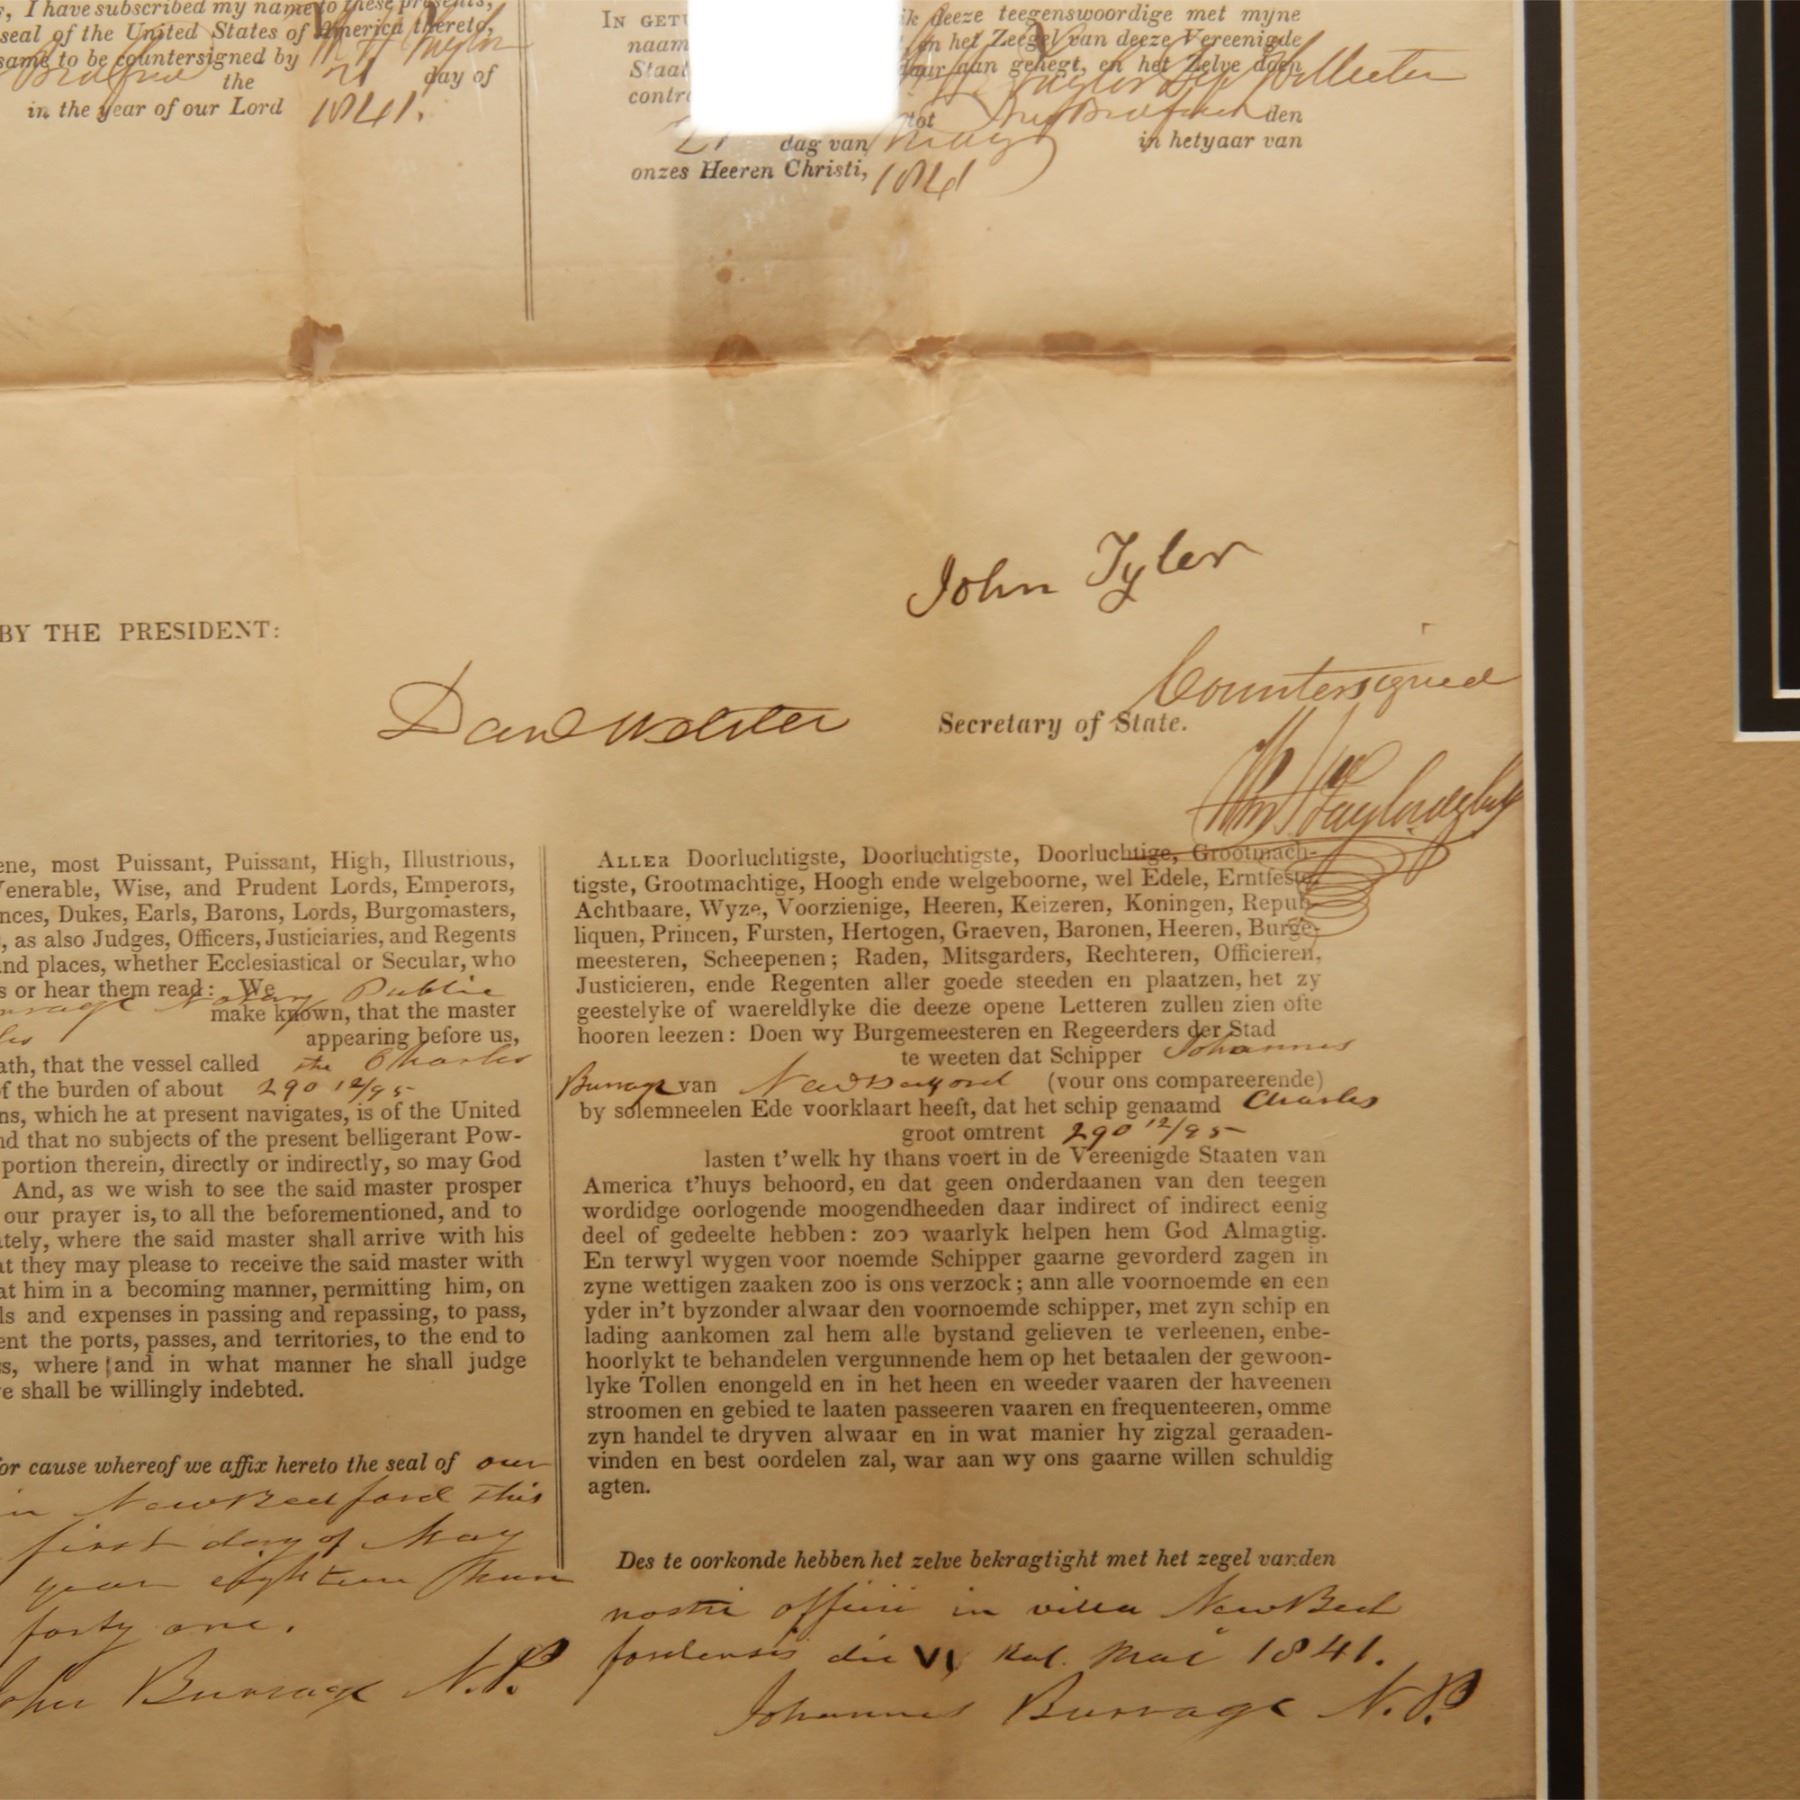 , I have subscribed my name to these presents,
seal of the United States of America thereto,
same to be countersigned by
the 21 day of
in the year of our Lord 1841.
IN GETU ik deeze teegenswoordige met myne
naam , en het Zeegel van deeze Vereenigde
Staat aan gehegt, en het Zelve doen
contra
tot New Bedford den
21 dag van May in hetyaar van
onzes Heeren Christi, 1841
John Tyler
BY THE PRESIDENT:
Countersigned
Danl Webster Secretary of State.
ene, most Puissant, Puissant, High, Illustrious,
Venerable, Wise, and Prudent Lords, Emperors,
nces, Dukes, Earls, Barons, Lords, Burgomasters,
, as also Judges, Officers, Justiciaries, and Regents
and places, whether Ecclesiastical or Secular, who
s or hear them read: We
Notary Public
make known, that the master
appearing before us,
ath, that the vessel called the Charles
of the burden of about 290 12/95
ns, which he at present navigates, is of the United
nd that no subjects of the present belligerant Pow-
portion therein, directly or indirectly, so may God
And, as we wish to see the said master prosper
our prayer is, to all the beforementioned, and to
ately, where the said master shall arrive with his
at they may please to receive the said master with
at him in a becoming manner, permitting him, on
ls and expenses in passing and repassing, to pass,
ent the ports, passes, and territories, to the end to
ss, where and in what manner he shall judge
e shall be willingly indebted.
for cause whereof we affix hereto the seal of our
in New Bedford this
first day of May
year eighteen hun
forty one.
John Burrage N.P.
ALLER Doorluchtigste, Doorluchtigste, Doorluchtige, Grootmach-
tigste, Grootmachtige, Hoogh ende welgeboorne, wel Edele, Erntfeste,
Achtbaare, Wyze, Voorzienige, Heeren, Keizeren, Koningen, Repub-
liquen, Princen, Fursten, Hertogen, Graeven, Baronen, Heeren, Burge-
meesteren, Scheepenen; Raden, Mitsgarders, Rechteren, Officieren,
Justicieren, ende Regenten aller goede steeden en plaatzen, het zy
geestelyke of waereldlyke die deeze opene Letteren zullen zien ofte
hooren leezen: Doen wy Burgemeesteren en Regeerders der Stad
te weeten dat Schipper Johannes
Burrage van New Bedford (vour ons compareerende)
by solemneelen Ede voorklaart heeft, dat het schip genaamd Charles
groot omtrent 290 12/95
lasten t'welk hy thans voert in de Vereenigde Staaten van
America t'huys behoord, en dat geen onderdaanen van den teegen
wordidge oorlogende moogendheeden daar indirect of indirect eenig
deel of gedeelte hebben: zoo waarlyk helpen hem God Almagtig.
En terwyl wygen voor noemde Schipper gaarne gevorderd zagen in
zyne wettigen zaaken zoo is ons verzock; ann alle voornoemde en een
yder in't byzonder alwaar den voornoemde schipper, met zyn schip en
lading aankomen zal hem alle bystand gelieven te verleenen, enbe-
hoorlykt te behandelen vergunnende hem op het betaalen der gewoon-
lyke Tollen enongeld en in het heen en weeder vaaren der haveenen
stroomen en gebied te laaten passeeren vaaren en frequenteeren, omme
zyn handel te dryven alwaar en in wat manier hy zigzal geraaden-
vinden en best oordelen zal, war aan wy ons gaarne willen schuldig
agten.
Des te oorkonde hebben het zelve bekragtight met het zegel vanden
nostri officii in villa New Bed
fordensis die VI Kal. Mai 1841.
Johannes Burrage N.P.